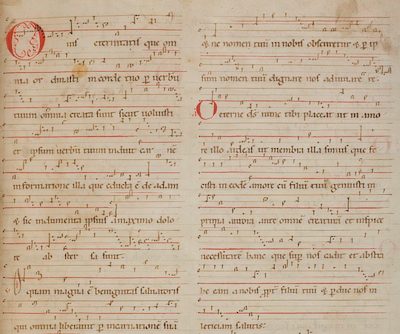 O uis eternitatis que om
nia ordinasti in corde tuo per uerbū
tuum omnia creata sunt sicut uoluisti
et ipsum uerbū tuum induit car nē
in formatione illa que educta ē de adam
& sic indumenta ipsius a maximo dolo
re abster sa sunt
O quam magna ē benignitas saluatoris
qui omnia liberauit per incarnationē suā
& ne nomen tuū in nobis obscuretur & per ip
sum nomen tuū dignare nos adiuuare
O eterne ds nunc tibi placeat ut in amo
re illo ardeas ut membra illa simus que fe
cisti in eodē amore cū filiū tuū genuisti in
prima aurora ante omnē creaturā et inspice
necessitatē hanc que sup nos cecidit et abstra
he eam a nobis ppt filiū tuū & perduc nos in
leticiam salutis